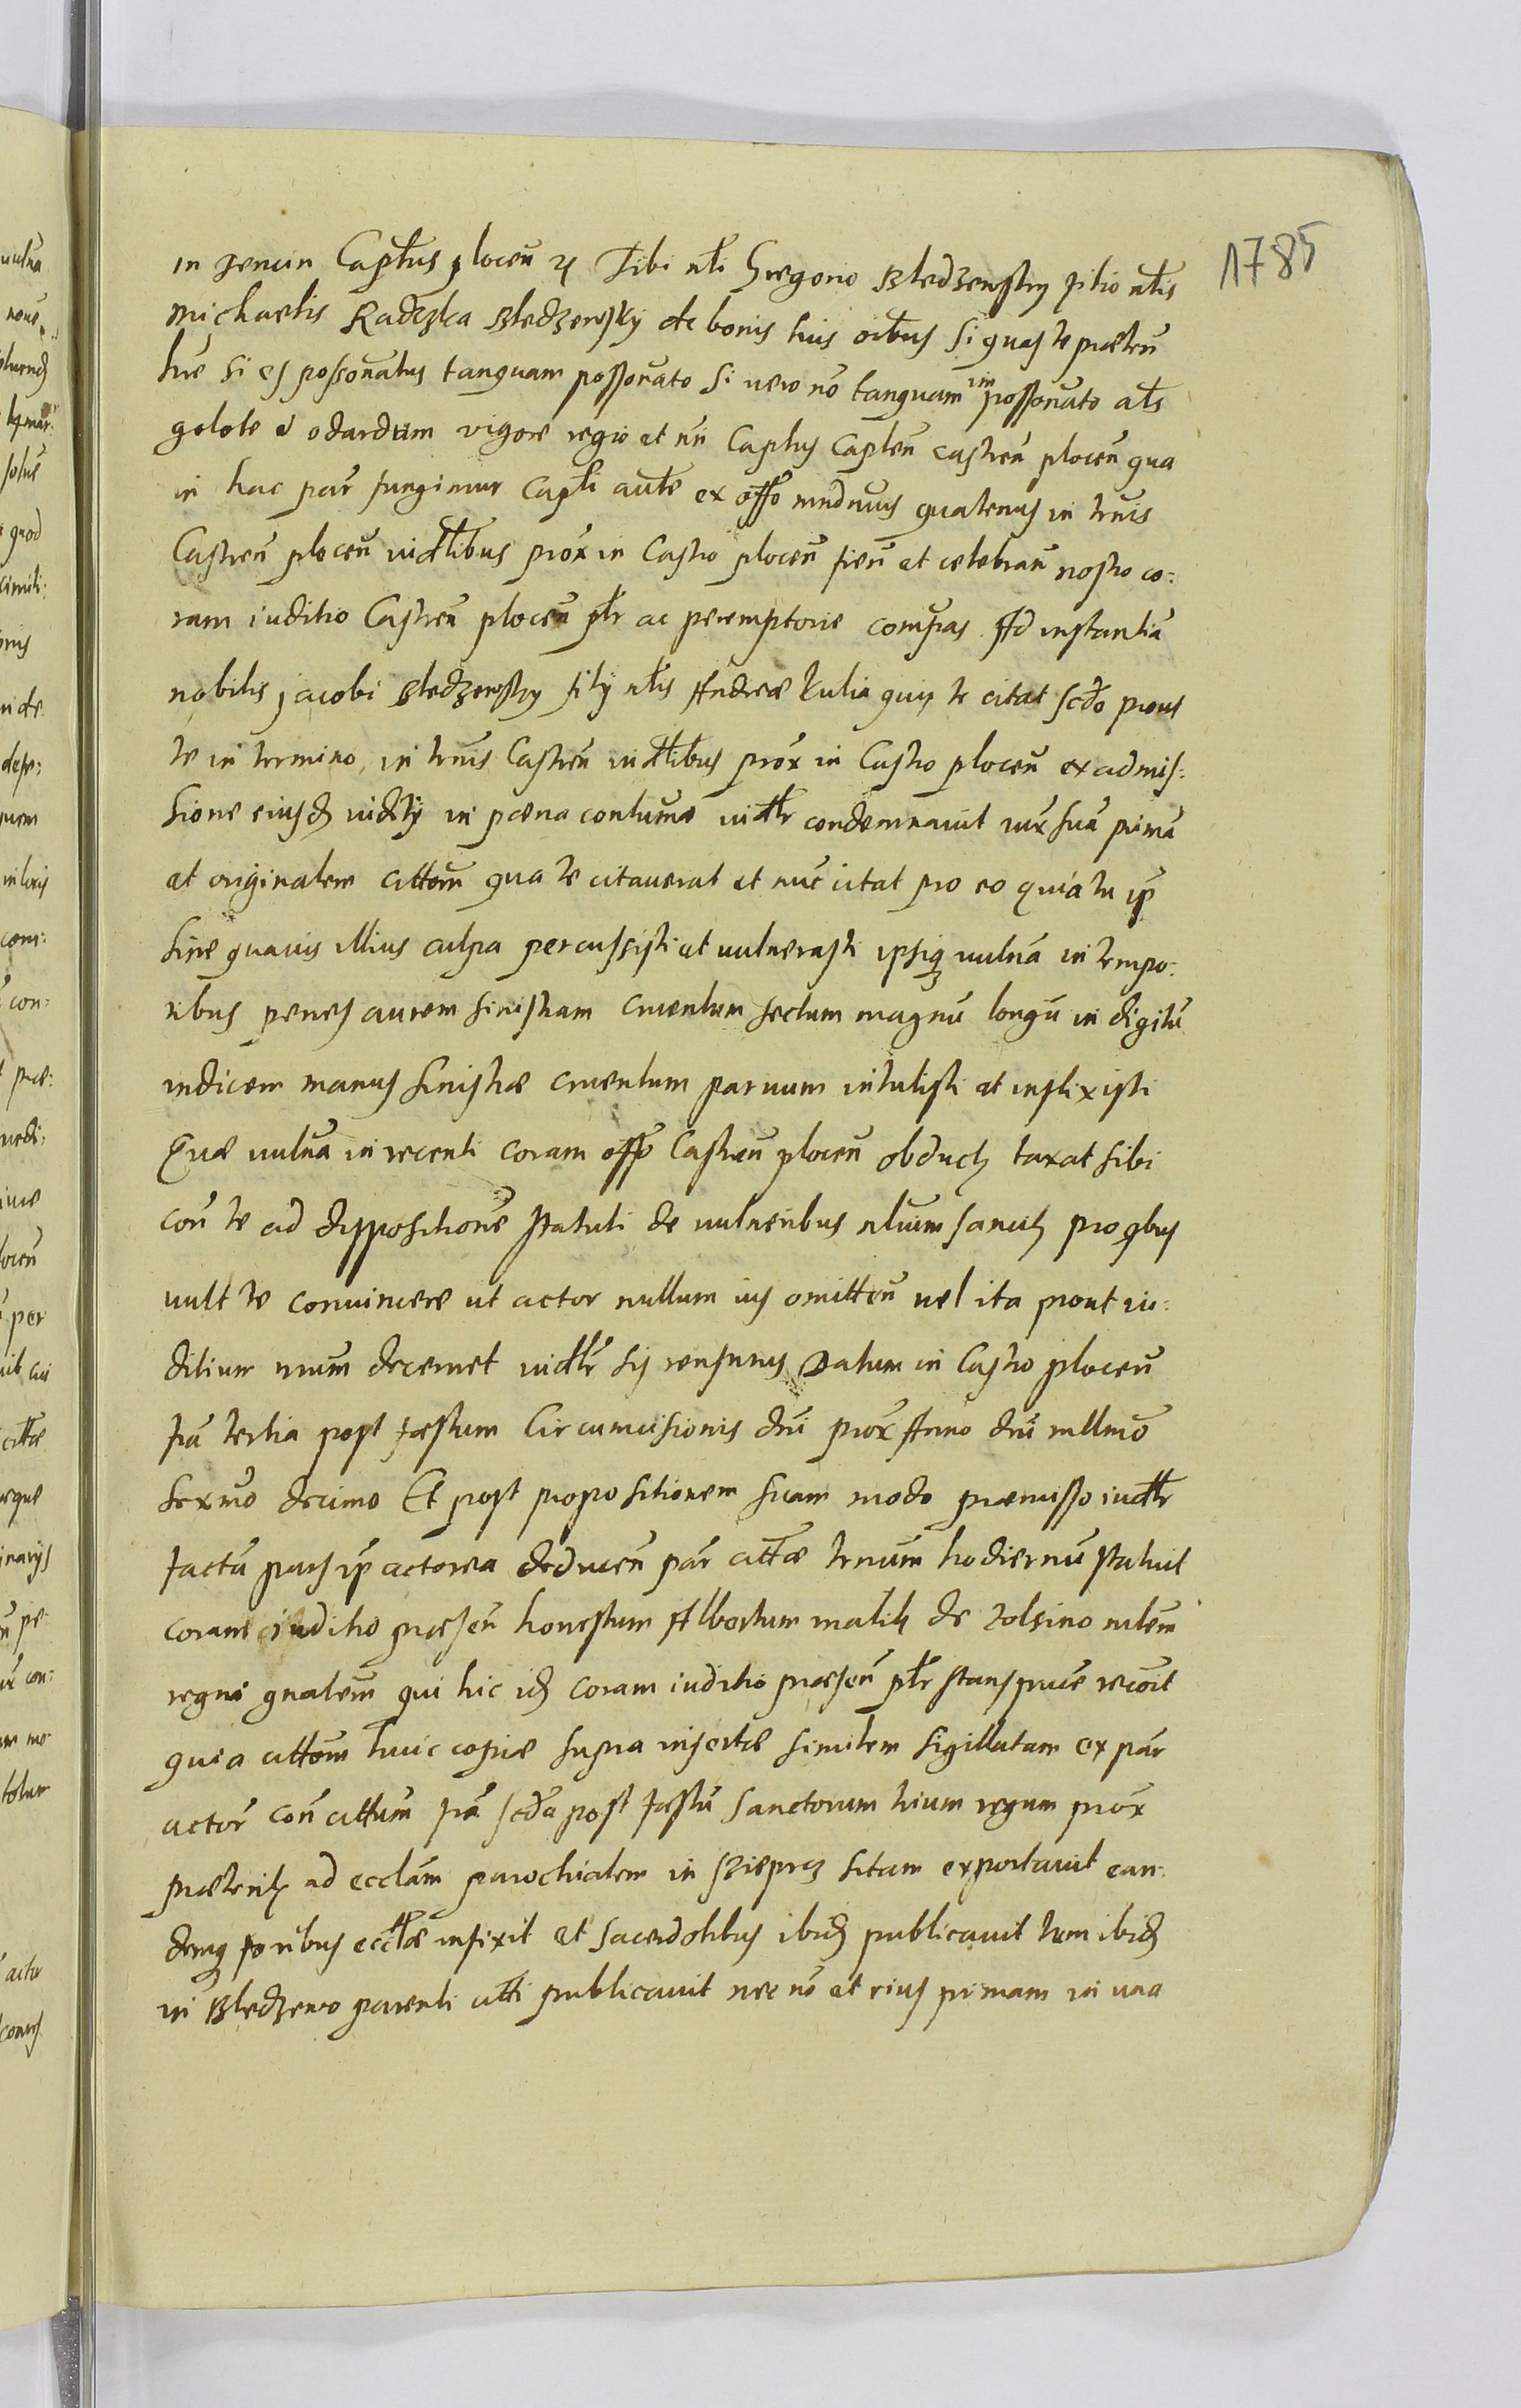 1785
in Zencin Capłus plocen etc Tibi nłi Gregorio Bledzewsky filio nłis
Michaelis Radczka Bledzewsky de bonis tuis oibus si quas te praeten
huē si es possonatus tanquam possonato si uero nō tanquam impossonato ałs
golote et odardum vigore regio et nri Captus Caplen castren plocen qua
in hac par fungimur Capłi aute ex offo mndmus quatenus in trnis
Castren plocen iudłibus prox in Castro plocen fien et celebran nostro co:
ram iuditio Castren plocen płr ac peremptorie compas Ad instantiā
nobilis Jacobi Bledzewsky filij nłis Andreae Kulia quis te citat scdo prout
te in termino in trnis Castren iudłibus prox in Castro plocen ex admis:
sione eiusd iuditij in poena contumae iudłr condemnauit iux suā primā
et originalem cittom qua te citauerat et nuc citat pro eo quia tu ip
sine quauis illius culpa percussisti et uulnerasti ipsiq uulnā in tempo:
ribus penes aurem sinistram cruentum sectum magnū longū in digitū
indicem manus sinistrae cruentum paruum intulisti et inflixisti
Quae uulnā in recenti coram offo Castren plocen obduct taxat sibi
con te ad dispositionē statuti de uulneribus nłium sancit pro qbus
uult te conuincere ut actor nullum ius omitten uel ita prout iu:
ditium nrum decernet iudłr sis rensurus Datum in Castro plocen
frā tertia post festum Circumcisionis dni prox Anno dni mllmo
sexmo decimo Et post propositionem suam modo praemisso iudłr
factā pars ip actorea deducen par cittae trnum hodiernū statuit
coram iuditio praesen honestum Albertum matih de Tolsino mlem
regni gnalem qui hic id coram iuditio praesen płr stans pnue recoit
quia cittom huic copiae supra insertae similem sigillatam ex par
actor con cittum frā scda post festū Sanctorum trium regum prox
praeterit ad ecclam parochialem in Szieprcz sitam exportauit ean:
demq foribus eccłae infixit et sacerdotibus ibid publicauit tum ibid
in Bledzewo parenti citti publicauit nec nō et eius primam in una